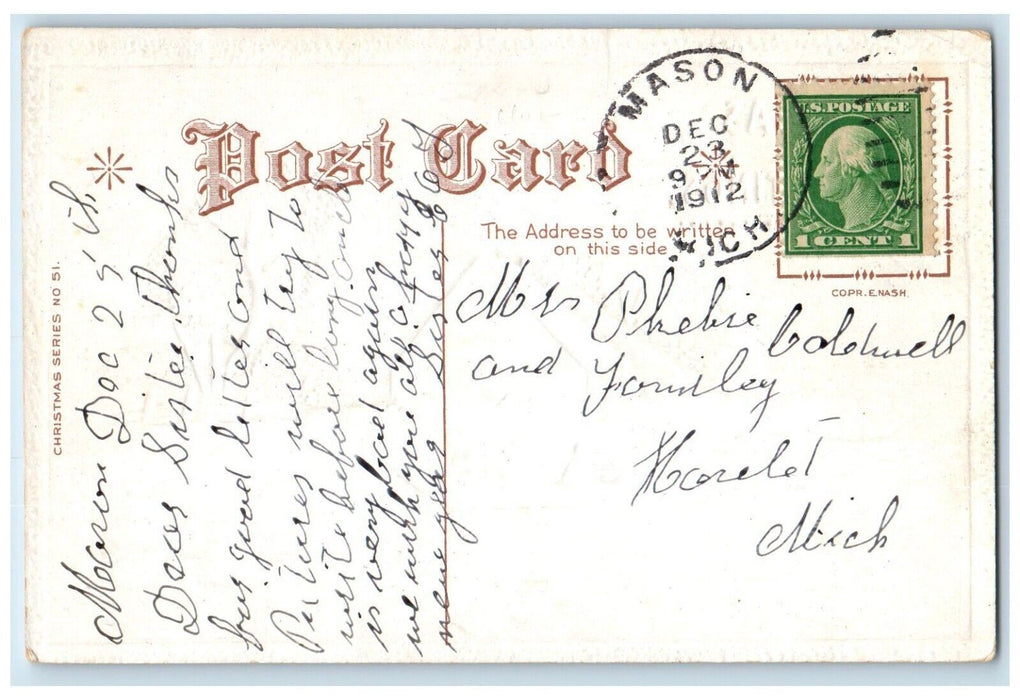 Post Card
The Address to be written
on this side
CHRISTMAS SERIES NO 51.
MASON
DEC
23
9 M
1912
MICH
U.S. POSTAGE
1 CENT 1
COPR. E. NASH
Mrs Phebie Coldwell
and Famley
Mich
Mason Dec 25 th
Dear Sister thanks
good letter and
Pictures will try to
write before long
is very bad again
we wish you all a happy
new year Sister